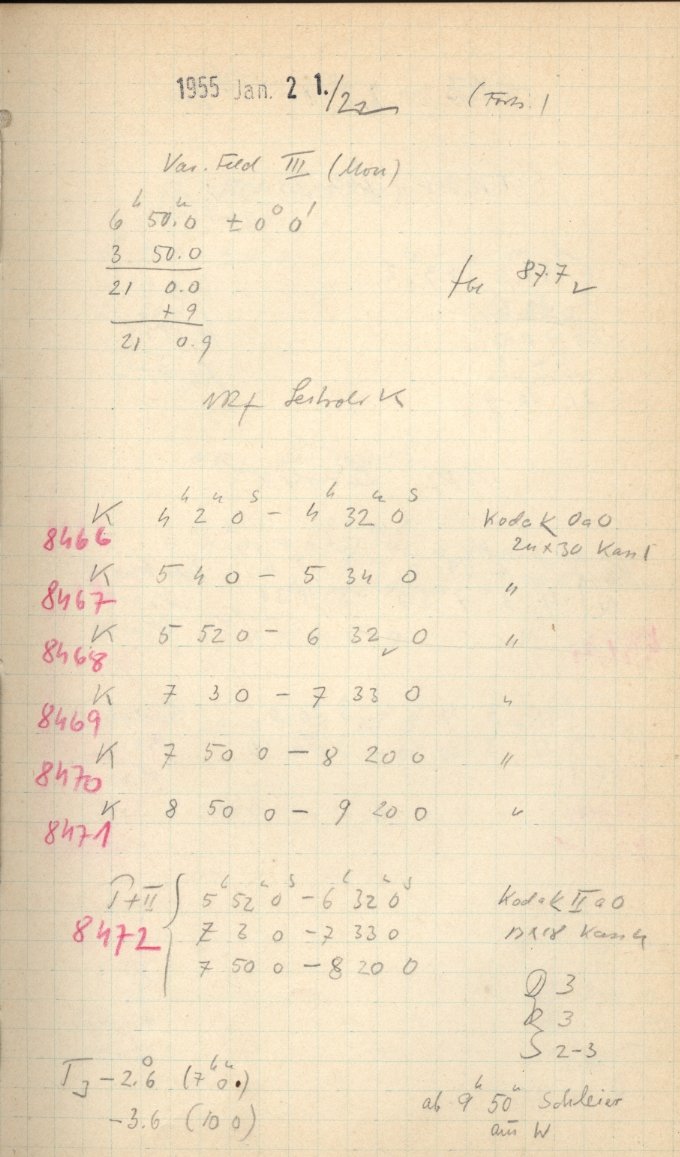 1955 Jan. 21./22 (Forts.)
Var. Feld III (Mon)
6h 50.0m ± 0° 0'
3 50.0
21 0.0
+ 9
21 0.9
87.7
K 4h 2m 0s – 4h 32m 0s Kodak OaO
8466 24x30 Kass
K 5 4 0 – 5 34 0 "
8467
K 5 52 0 – 6 32 0 "
8468
K 7 3 0 – 7 33 0 "
8469
K 7 50 0 – 8 20 0 "
8470
K 8 50 0 – 9 20 0 "
8471
T+II { 5h 52m 0s – 6h 32m 0s Kodak IIaO
8472 7 3 0 – 7 33 0 13x18 Kass
7 50 0 – 8 20 0
D 3
R 3
S 2-3
TJ – 2.°6 (7h 0m)
– 3.6 (10 0)
ab 9h 50m Schleier
aus W